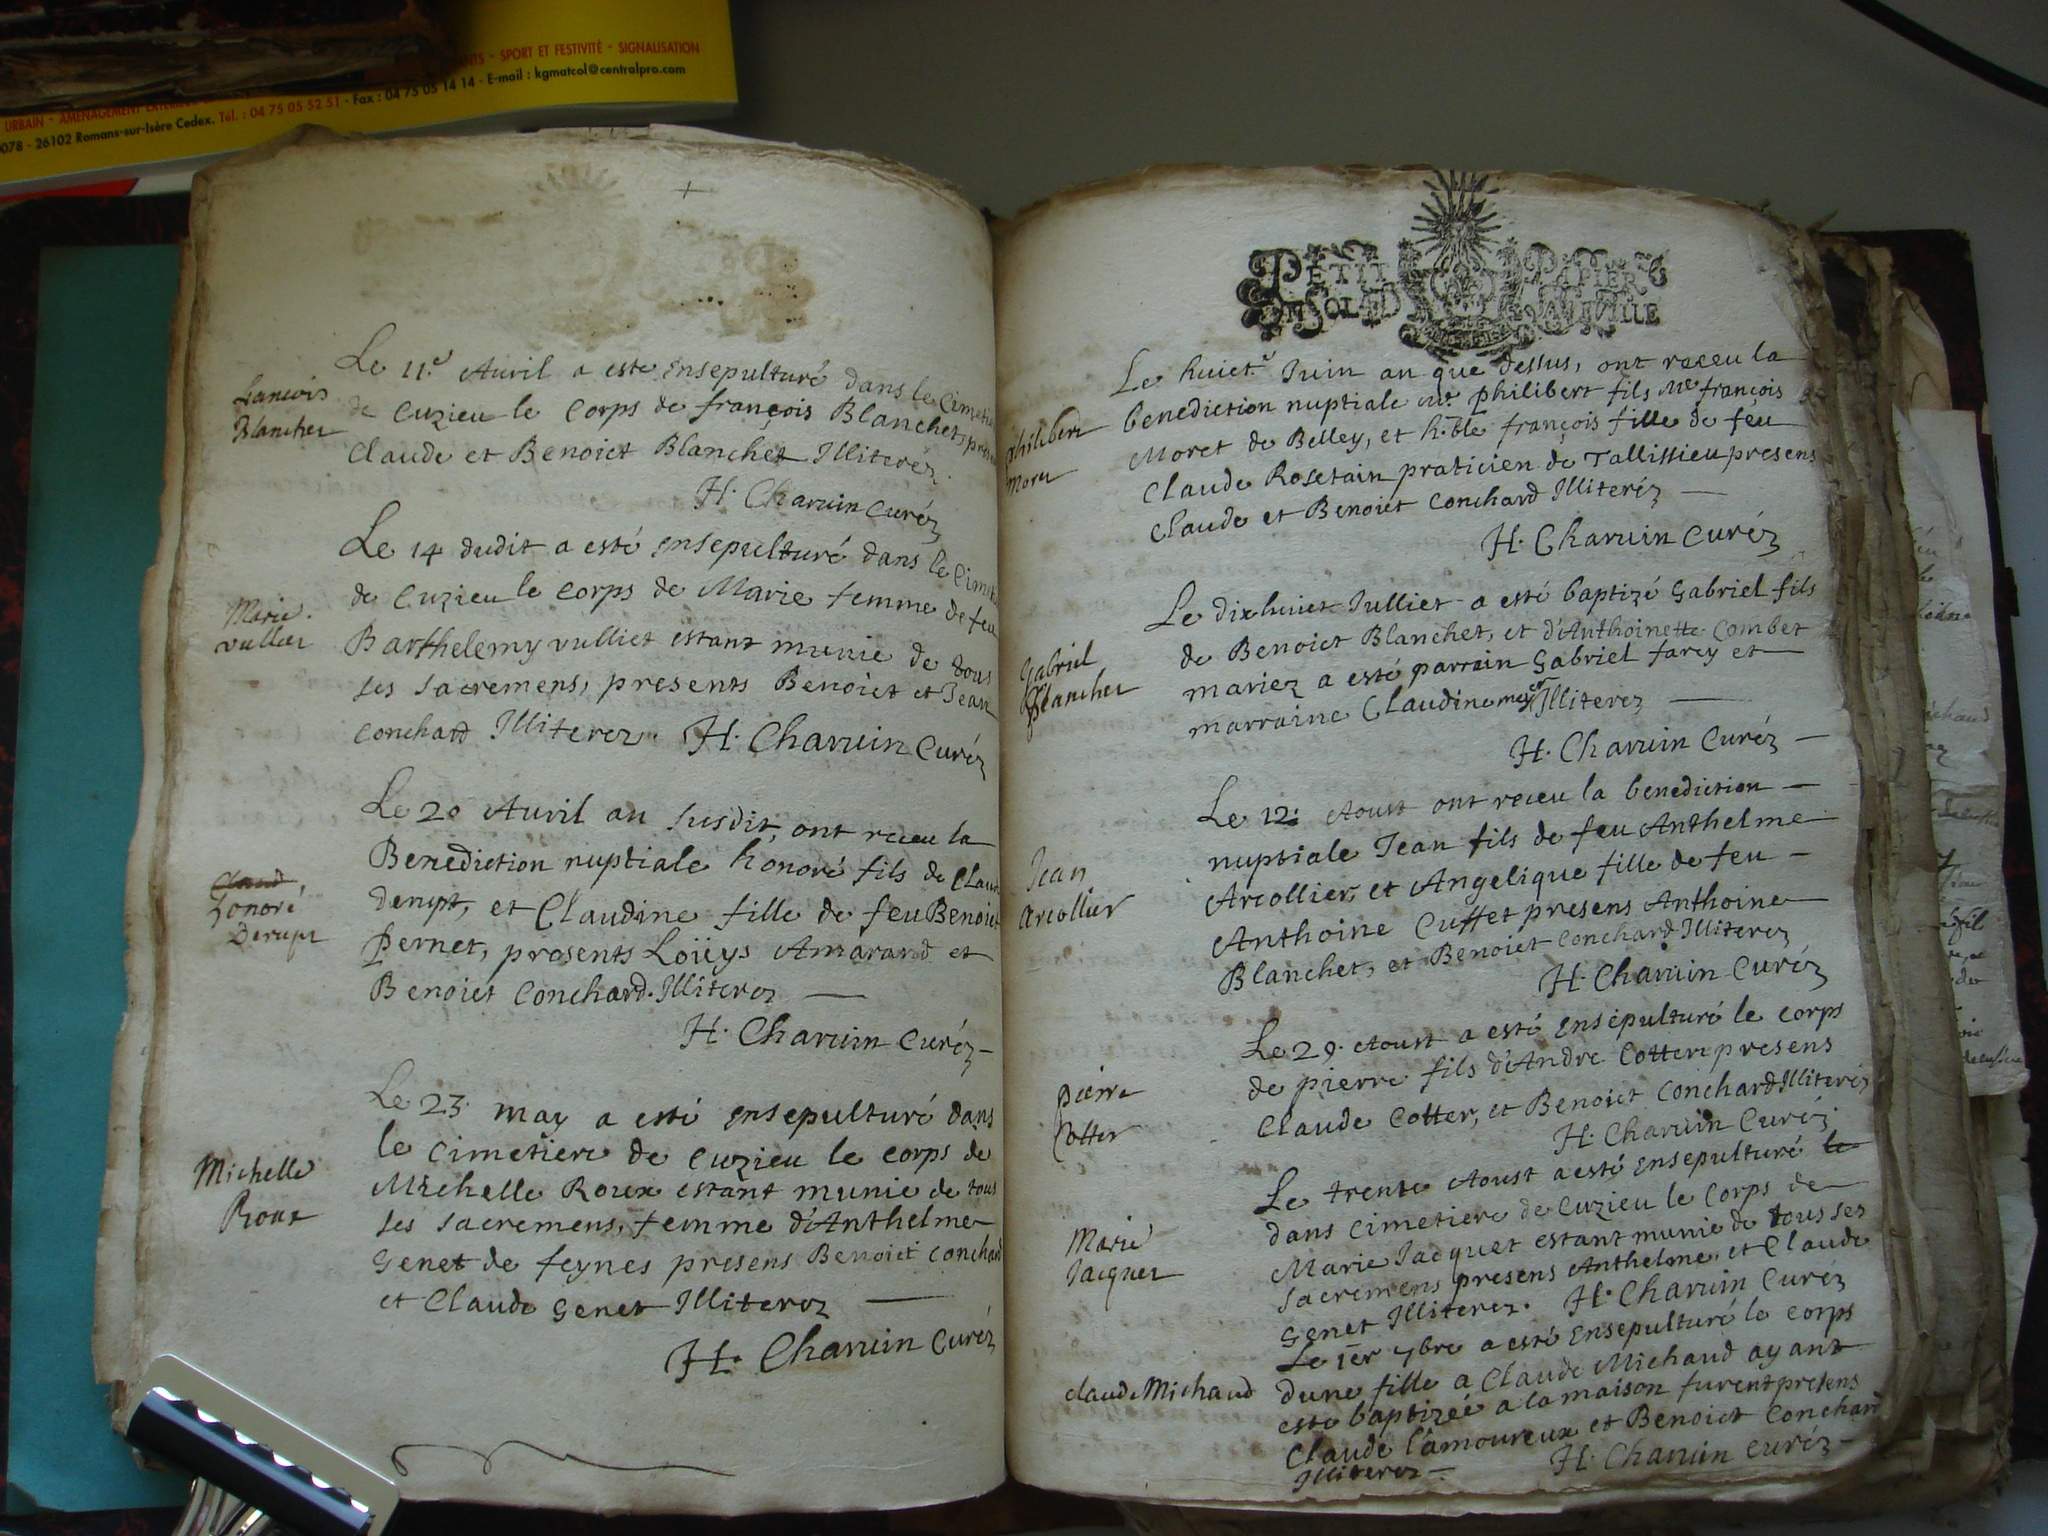 NTS - SPORT ET FESTIVITÉ - SIGNALISATION
URBAIN - AMÉNAGEMENT
Fax : 04 75 05 14 14 - E-mail : kgmatcol@centralpro.com
0078 - 26102 Romans-sur-Isère Cedex. Tél. : 04 75 05 52 51
Blanchet
Le 11.e Auril a este ensepulturé dans le Cimeti
de Cuzieu le Corps de françois Blanchet, prese
Claude et Benoict Blanchet Illiteréz.
H. Charuin Curéz
Marie
vulliet
Le 14 dudit a esté ensepulturé dans le Cimeti
de Cuzieu le Corps de Marie femme de feu
Barthelemy vulliet estant munie de tous
ses sacremens, presents Benoict et Jean
Conchard Illiterez. H. Charuin Curéz
Claud
honoré
Derupt
Le 20 Auril an susdit, ont receu la
Benediction nuptiale honoré fils de Claud
derupt, et Claudine fille de feu Benoict
Pernet, presents Loüys Amarand et
Benoict Conchard. Illiterez —
H. Charuin Curéz —
Michelle
Roux
Le 23 may a esté ensepulturé dans
le Cimetiere de Cuzieu le corps de
Michelle Roux estant munie de tous
ses sacremens, femme d'Anthelme
Genet de feynes presens Benoict Conchard
et Claude Genet Illiterez —
H. Charuin Curéz
PETIT PAPIER
Philibert
Moret
Le huict.e Juin an que dessus, ont receu la
benediction nuptiale Mr. philibert fils Me françois
Moret de Belley, et h.ble françois fille de feu
Claude Rosetain praticien de Tallissieu presens
Claude et Benoict Conchard Illiteréz —
H. Charuin Curéz
Gabriel
Blanchet
Le dixhuict Julliet a esté baptizé Gabriel fils
de Benoict Blanchet, et d'Anthoinette Combet
mariez a esté parrain Gabriel farcy et
marraine Claudine Illiterez —
H. Charuin Curéz —
Jean
Arcollier
Le 12. Aoust ont receu la benediction —
nuptiale Jean fils de feu Anthelme
Arcollier, et Angelique fille de feu —
Anthoine Cuffet presens Anthoine
Blanchet, et Benoict Conchard Illiterez
H. Charuin Curéz
pierre
Cotter
Le 29. Aoust a esté ensepulturé le corps
de pierre fils d'Andre Cotter presens
Claude Cotter, et Benoict Conchard Illiteréz
H. Charuin Curéz.
Marie
Jacquet
Le trente Aoust a esté ensepulturé le
dans Cimetiere de Cuzieu le Corps de
Marie Jacquet estant munie de tous ses
sacremens presens Anthelme, et Claude
Genet Illiterez. H. Charuin Curéz
claude Michaud
Le 1er 7bre a esté ensepulturé le corps
dune fille a Claude Michaud ayant
esté baptizée a la maison furent presens
Claude l'amoureux et Benoict Conchard
Illiterez — H. Charuin Curéz —